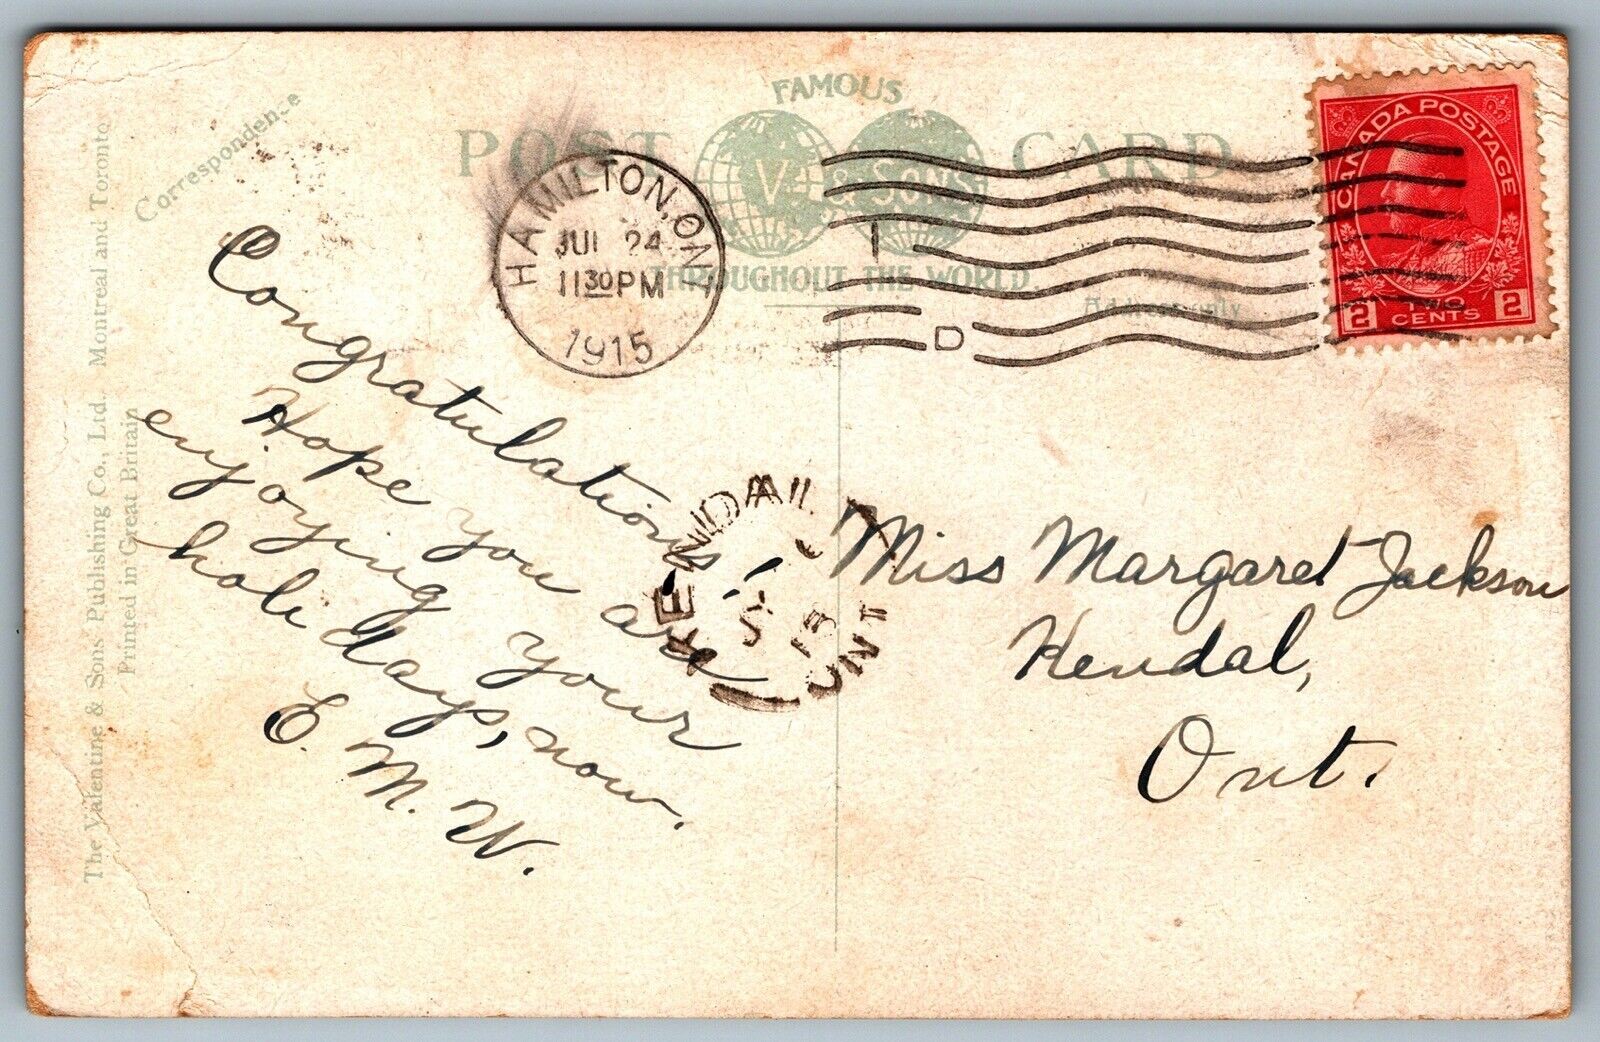 The Valentine & Sons Publishing Co., Ltd. Montreal and Toronto
Printed in Great Britain
Correspondence
FAMOUS
POST CARD
V. & SONS
THROUGHOUT THE WORLD.
Address only
HAMILTON, ONT.
JUL 24
1130PM
1915
1
D
CANADA POSTAGE
2 CENTS 2
Congratulations!
Hope you are
enjoying your
holi days, now.
E. M. W.
KENDAL
15
ONT
Miss Margaret Jackson
Kendal,
Ont.